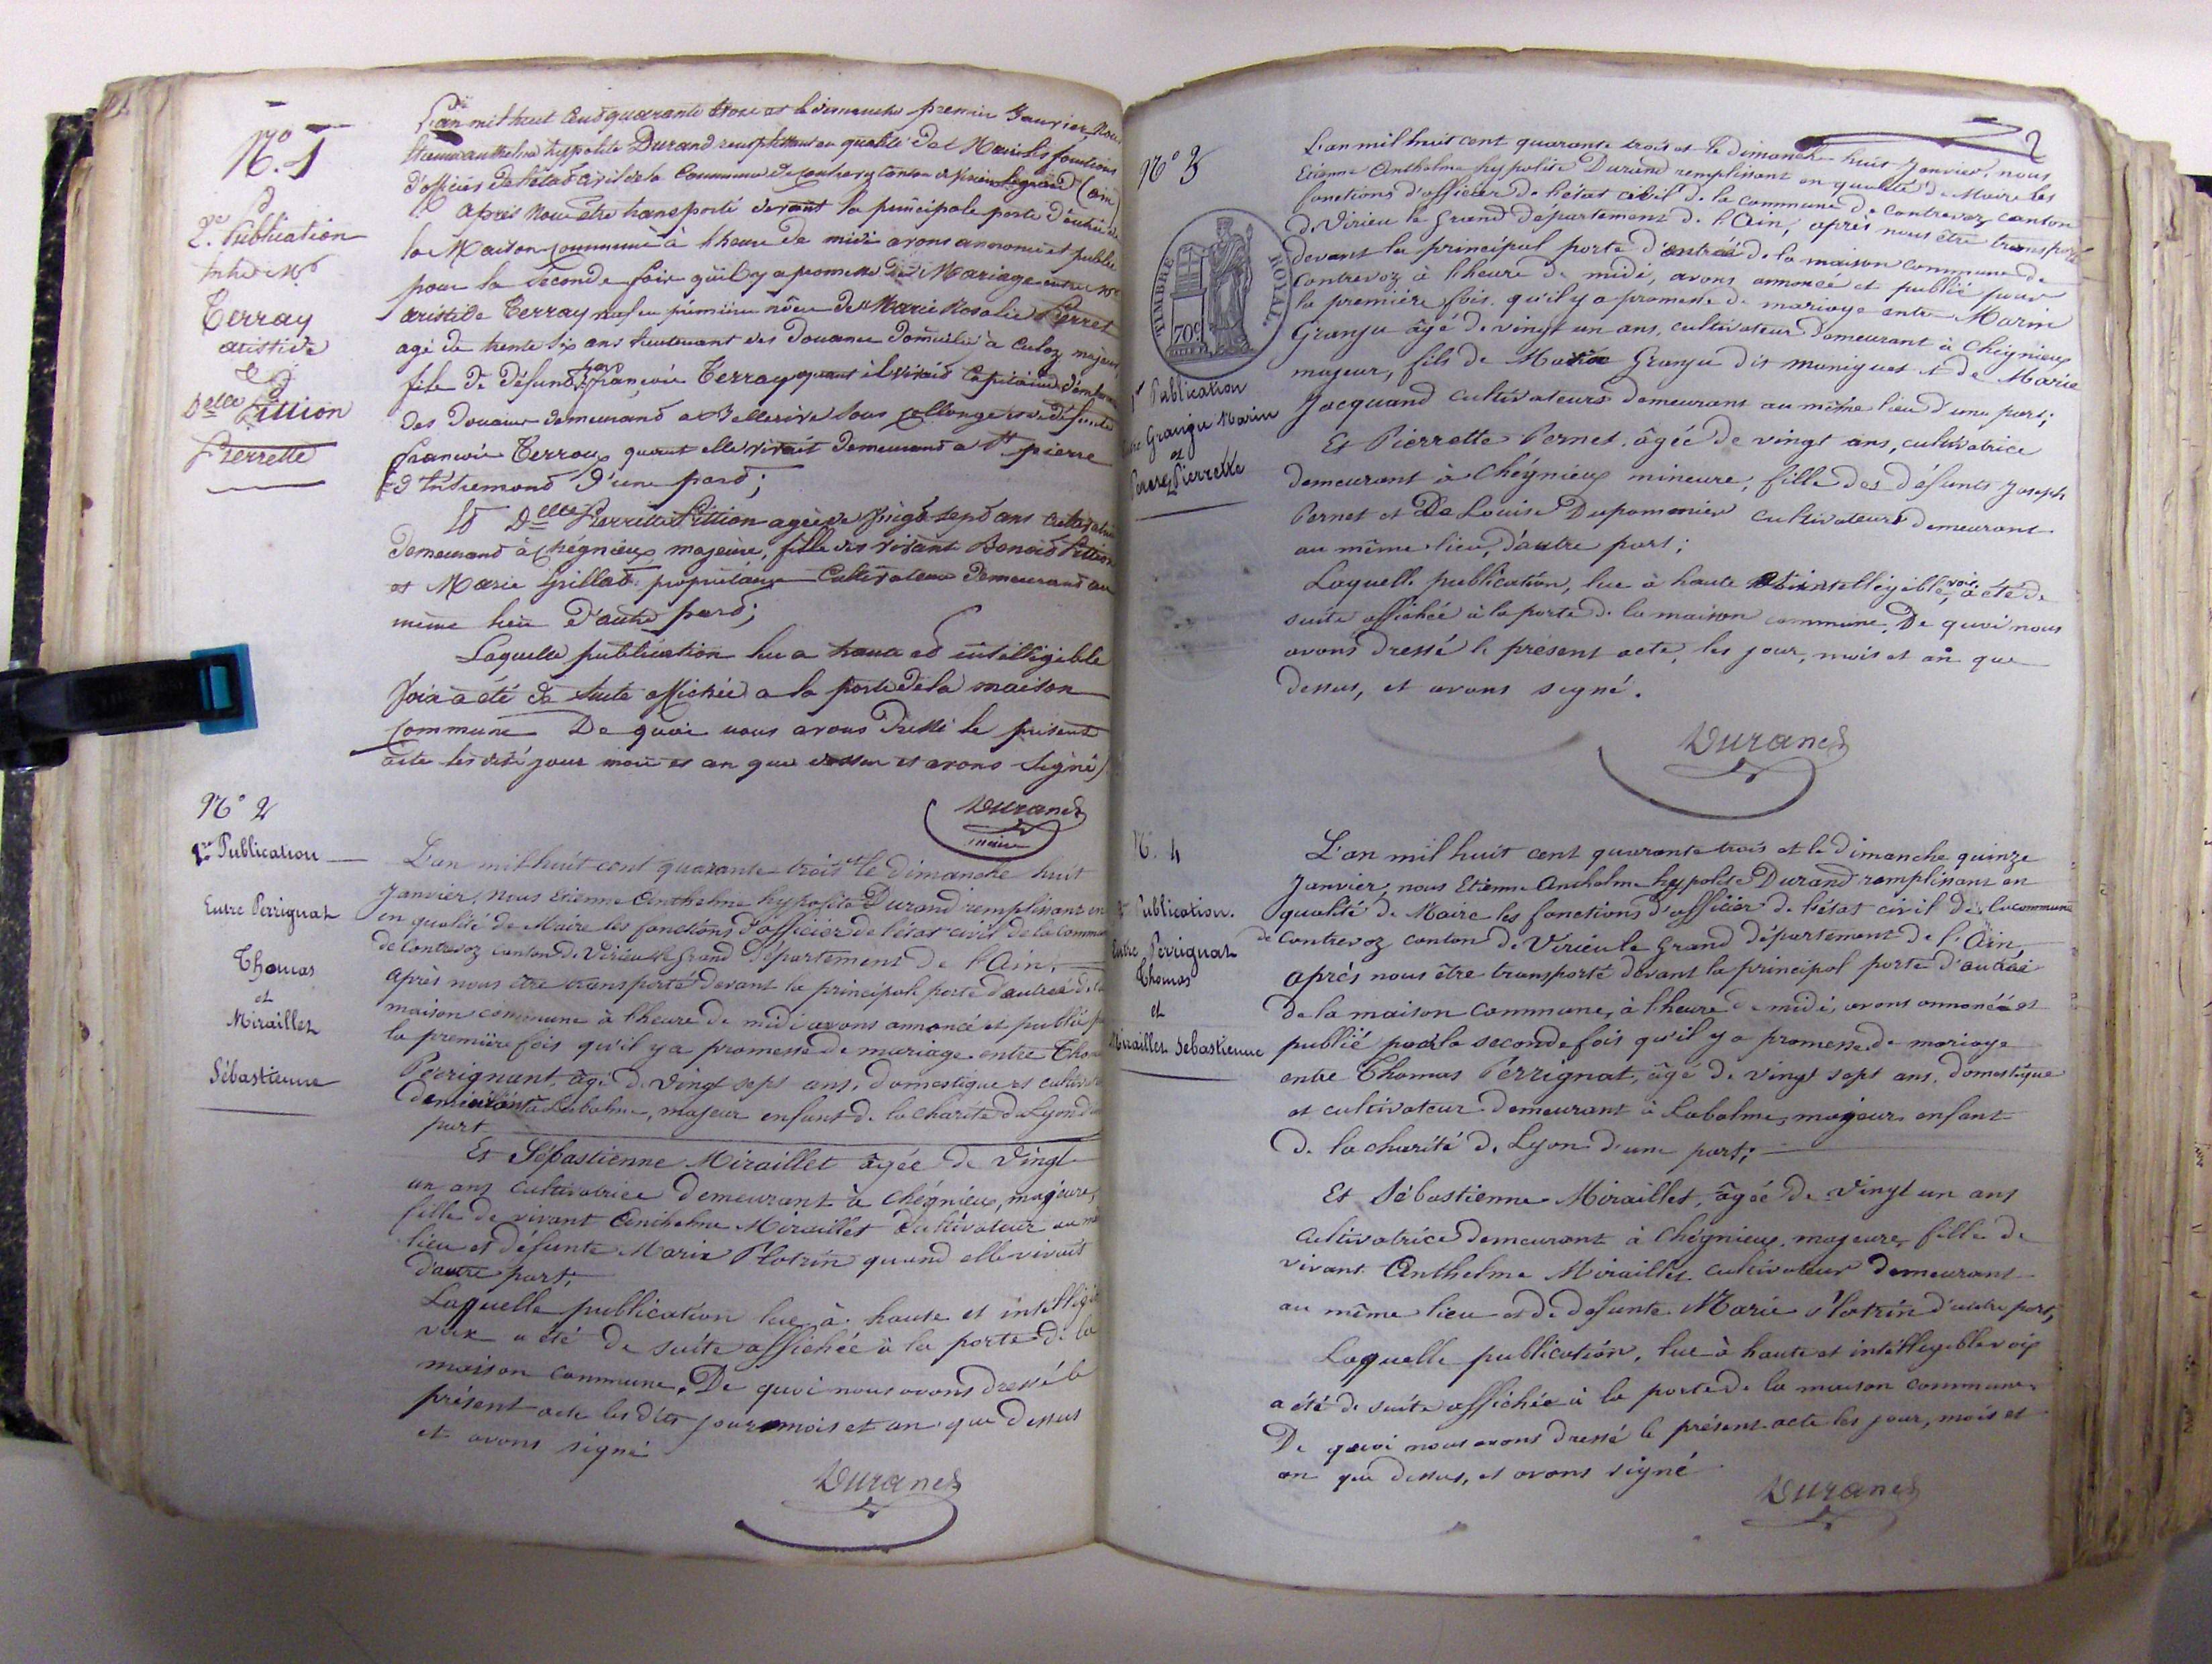 N.º 1
2.e Publication
entre Mr
Terray
aristide
&
Delle Pittion
Pierrette
L'an mil huit cent quarante trois et le dimanche premier Janvier, Nous
Etienne anthelme hyppolite Durand remplissant en qualité de Maire les fonctions
d'officier de l'état civil de la Commune de Contrevoz canton de Virieu le grand (ain)
après nous être transporté devant la principale porte d'entrée de
la Maison commune à l'heure de midi avons annoncé et publié
pour la seconde fois qu'il y a promesse de Mariage entre Mr
aristide Terray Marie Rosalie Perret
agé de trente six ans lieutenant des Douanes domicilié à Culoz majeur
fils de défunt françois Terray quant il vivait Capitaine
des Douanes demeurand a Bellerive sous collonge et de défunte
françoise Terroux quant elle vivait demeurand a St pierre
d'Entremond d'une pard;
Et Delle Pierrette Pittion agée de vingt sept ans cultivatrice
demeurand à Chégnieux majeure, fille des vivant Benoid Pittion
et Marie Grillad propriétaire Cultivateur demeurand au
même lieu d'autre pard;
Laquelle publication lue a haua ed intelligible
Voix a été de suite affichée a la porte de la maison
commune De quoi nous avons dressé le présent
acte les dits jour mois et an que dessus et avons signé
Durand
maire
N.º 2
1.re Publication
Entre Perrignat
Thomas
et
Miraillet
Sébastienne
L'an mil huit cent quarante trois et le dimanche huit
Janvier, nous Etienne Anthelme hypolite Durand remplissant en
en qualité de Maire les fonctions d'officier de l'état civil de la Commune
de Contrevoz canton de Virieu le Grand département de l'Ain,
après nous être transporté devant la principale porte d'entrée de la
maison commune à l'heure de midi avons annoncé et publié
la première fois qu'il y a promesse de mariage entre Thomas
Perrignant, âgé de vingt sept ans, domestique et cultivateur
demeurant à Labalme, majeur enfant de la charité de Lyon d'une
part
Et Sébastienne Miraillet âgée de Vingt
un ans cultivatrice demeurant à Chégnieux, majeure,
fille de vivant Anthelme Miraillet cultivateur au même
lieu et défunte Marie Plotrin quand elle vivait
d'autre part;
Laquelle publication lue à haute et intelligible
voix a été de suite affichée à la porte de la
maison commune, De quoi nous avons dressé le
présent acte les dits jour mois et an que dessus
et avons signé
Durand
2
N.º 3
TIMBRE ROYAL.
70c
1re Publication
Entre Granju Marin
et
Pernet Pierrette
L'an mil huit cent quarante trois et le dimanche huit Janvier, nous
Etienne Anthelme hypolite Durand remplissant en qualité de Maire les
fonctions d'officier de l'état civil de la commune de contrevoz canton
de Virieu le Grand département de l'Ain, après nous être transporté
devant la principal porte d'entrée de la maison commune de
Contrevoz à l'heure de midi, avons annoncé et publié pour
la première fois, qu'il y a promesse de mariage entre Marin
Granju âgé de vingt un ans, cultivateur demeurant à Cheignieux
majeur, fils de Marin Granju dit muniguet et de Marie
Jacquand cultivateurs demeurant au même lieu d'une part;
Et Pierrette Pernet, âgée de vingt ans, cultivatrice
demeurant à Chégnieux mineure, fille des défunts Joseph
Pernet et De Louise Dupommier cultivateurs demeurant
au même lieu, d'autre part;
Laquelle publication, lue à haute et intelligible voix, a été de
suite affichée à la porte de la maison commune, De quoi nous
avons dressé le présent acte, les jour, mois et an que
dessus, et avons signé.
Durand
N.º 4
2e Publication.
Entre Perrignat
Thomas
et
Miraillet Sébastienne
L'an mil huit cent quarante trois et le dimanche quinze
Janvier, nous Etienne Anthelme hypolite Durand remplissant en
qualité de Maire les fonctions d'officier de l'état civil de la commune
de Contrevoz canton de Virieu le Grand département de l'Ain
après nous être transporté devant la principal porte d'entrée
de la maison commune, à l'heure de midi, avons annoncé et
publié pour la seconde fois qu'il y a promesse de mariage
entre Thomas Perrignat, âgé de vingt sept ans, domestique
et cultivateur demeurant à Labalme, majeur, enfant
de la charité de Lyon d'une part;
Et Sébastienne Miraillet, âgée de vingt un ans
cultivatrice demeurant à Chégnieux, majeure, fille de
vivant Anthelme Miraillet cultivateur demeurant
au même lieu et de défunte Marie Plotrin d'autre part,
Laquelle publication, lue à haute et intelligible voix
a été de suite affichée à la porte de la maison commune
De quoi nous avons dressé le présent acte les jour, mois et
an que dessus, et avons signé
Durand